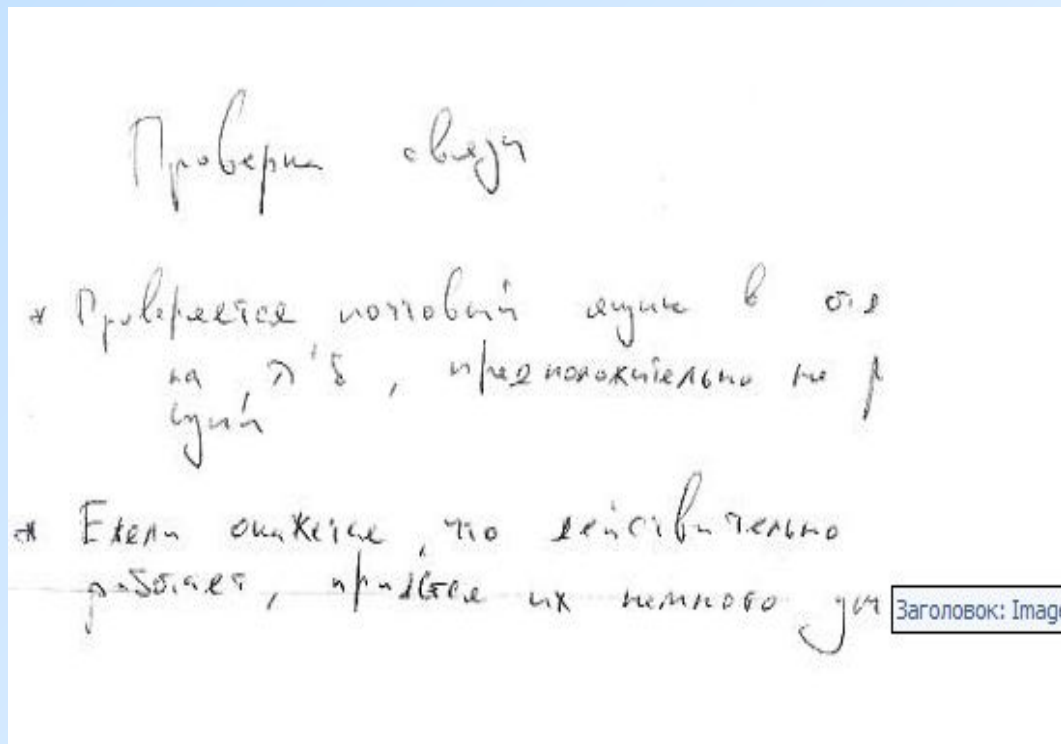 Проверка связи
* Проверяется почтовый ящик в
на , предположительно не р
* Ежели окажется, что действительно
работает, придётся их немного
Заголовок: Image